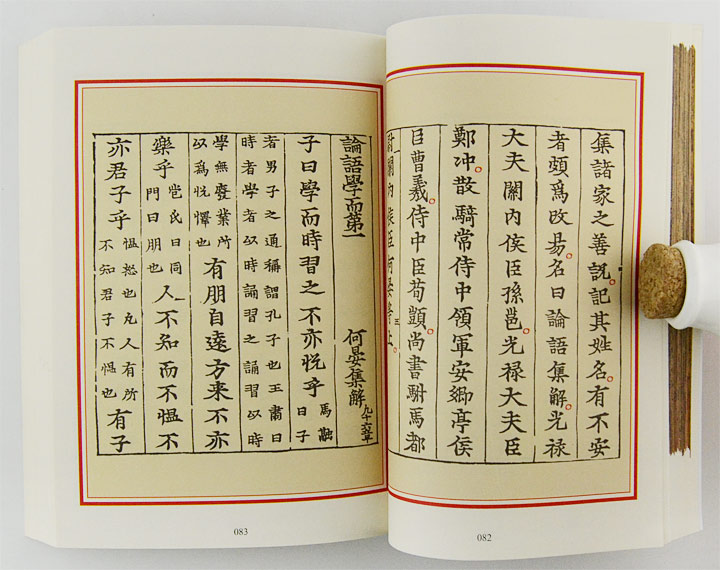 集諸家之善說記其姓名有不安
者頗爲改易名曰論語集解光禄
大夫關內侯臣孫邕光禄大夫臣
鄭冲散騎常侍中領軍安鄉亭侯
臣曹羲侍中臣荀顗尚書駙馬都
尉關內侯臣何晏等上
三
082
論語學而第一 何晏集解 凡十六章
子曰學而時習之不亦悦乎 馬融曰子
者男子之通稱謂孔子也王肅曰
時者學者以時誦習之誦習以時
學無廢業所以爲悦懌也 有朋自遠方来不亦
樂乎 苞氏曰同門曰朋也 人不知而不愠不
亦君子乎 愠怒也凡人有所不知君子不愠也 有子
083